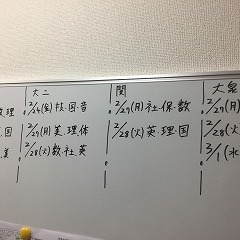 数理
・国
・美
大二
2/24(金)技・国・音
2/27(月)美・理・体
2/28(火)数・社・英
関
2/27(月)社・保・数
2/28(火)英・理・国
大泉
2/27(月)
2/28(火)
3/1(水)